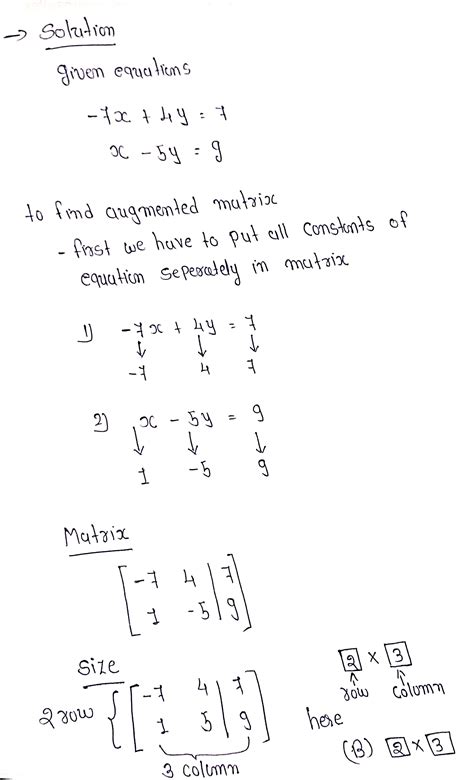 → Solution
given equations
-7x + 4y = 7
x - 5y = 9
to find augmented matrix
- first we have to put all constants of
equation seperately in matrix
1) -7x + 4y = 7
↓ ↓ ↓
-7 4 7
2) x - 5y = 9
↓ ↓ ↓
1 -5 9
Matrix
[ -7 4 | 7 ]
[ 1 -5 | 9 ]
Size
2 row { [ -7 4 | 7 ]
[ 1 5 | 9 ]
3 column
2 × 3
↑ ↑
row column
here
(B) 2 × 3